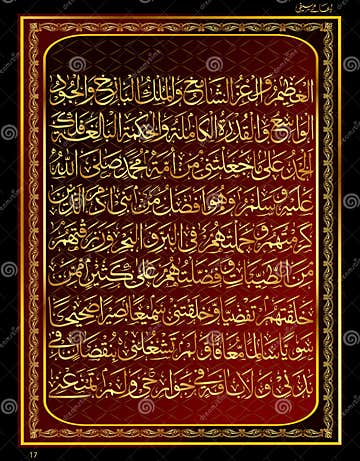 العظيم والعز الشامخ والملك الباذخ والجود
الواسع والقدرة الكاملة والحكمة البالغة فلك
الحمد على ما جعلتني من أمة محمد صلى الله
عليه وسلم وهو أفضل من بني آدم الذين
كرمتهم وحملتهم في البر والبحر ورزقتهم
من الطيبات وفضلتهم على كثير ممن
خلقتهم تفضيلا وخلقتني سميعا بصيرا صحيحا
سويا سالما معافا ولم تشغلني بنقصان في
بدني ولا بآفة في جوارحي ولم تمنعني
17